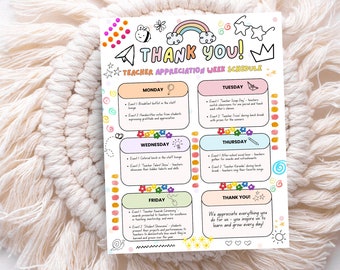 THANK YOU!
TEACHER APPRECIATION WEEK SCHEDULE
MONDAY
Event 1: Breakfast buffet in the staff lounge.
Event 2: Handwritten notes from students expressing gratitude and appreciation.
TUESDAY
Event 1: "Teacher Swap Day" - teachers switch classrooms for one period and teach each other's classes.
Event 2: Teacher trivia
with prizes for the winners.
WEDNESDAY
Event 1: Catered lunch in the staff lounge.
Event 2: "Teacher Talent Show" - teachers showcase their hidden talents and skills.
THURSDAY
Event 1: After-school social hour - teachers gather for snacks and refreshments.
Event 2: "Teacher Karaoke" during lunch break - teachers sing their favorite songs.
FRIDAY
Event 1: "Teacher Awards Ceremony" - awards presented to teachers for excellence in teaching, mentoring, and more.
Event 2: "Student Showcase" - students present their projects and performances to
THANK YOU!
We appreciate everything you
do for us - you inspire us to
learn and grow every day!